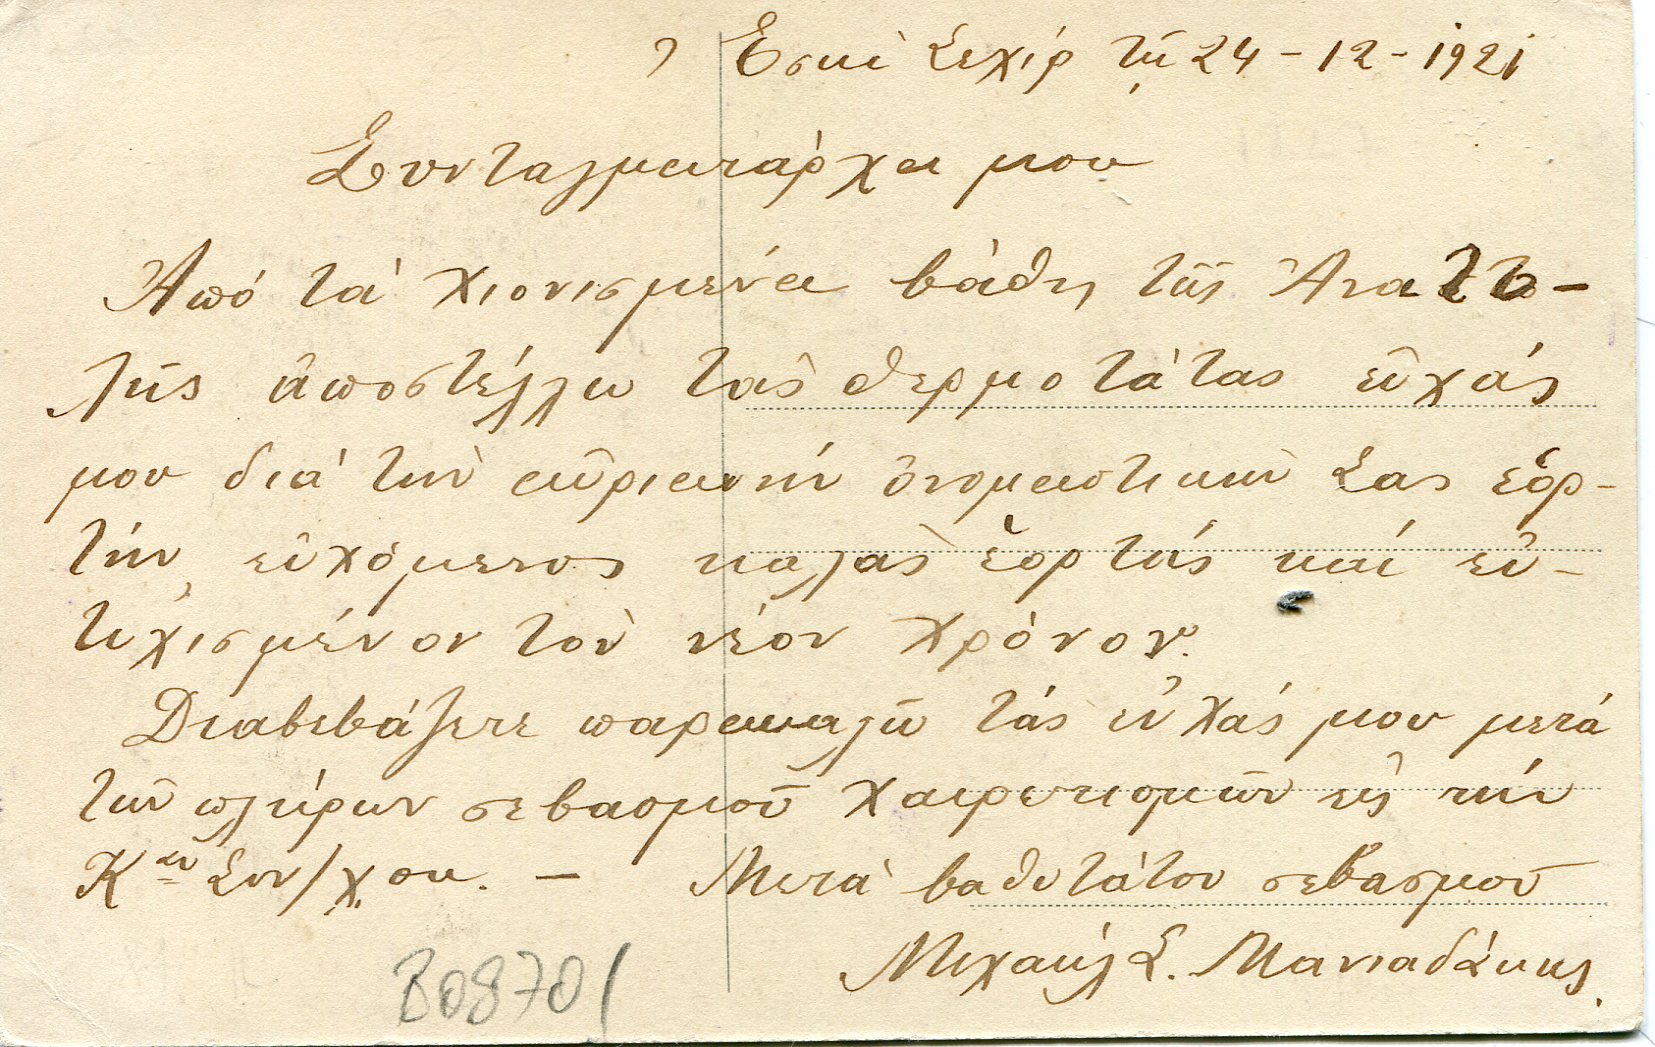 Ἐσκὶ Σεχίρ τῇ 24 - 12 - 1921
Συνταγματάρχα μου
Ἀπό τά χιονισμένα βάθη τῆς Ἀνατο-
λῆς ἀποστέλλω τὰς θερμοτάτας εὐχάς
μου διά τὴν αὐριανήν ὀνομαστικὴν Σας ἑορ-
τήν, εὐχόμενος καλὰς ἑορτάς καί εὐ-
τυχισμένον τὸν νέον χρόνον.
Διαβιβάζετε παρακαλῶ τάς εὐχάς μου μετά
τῶν πλήρων σεβασμοῦ χαιρετισμῶν εἰς τήν
Καν Συν/χου. — Μετὰ βαθυτάτου σεβασμοῦ
Μιχαήλ Σ. Μανιαδάκης.
308701